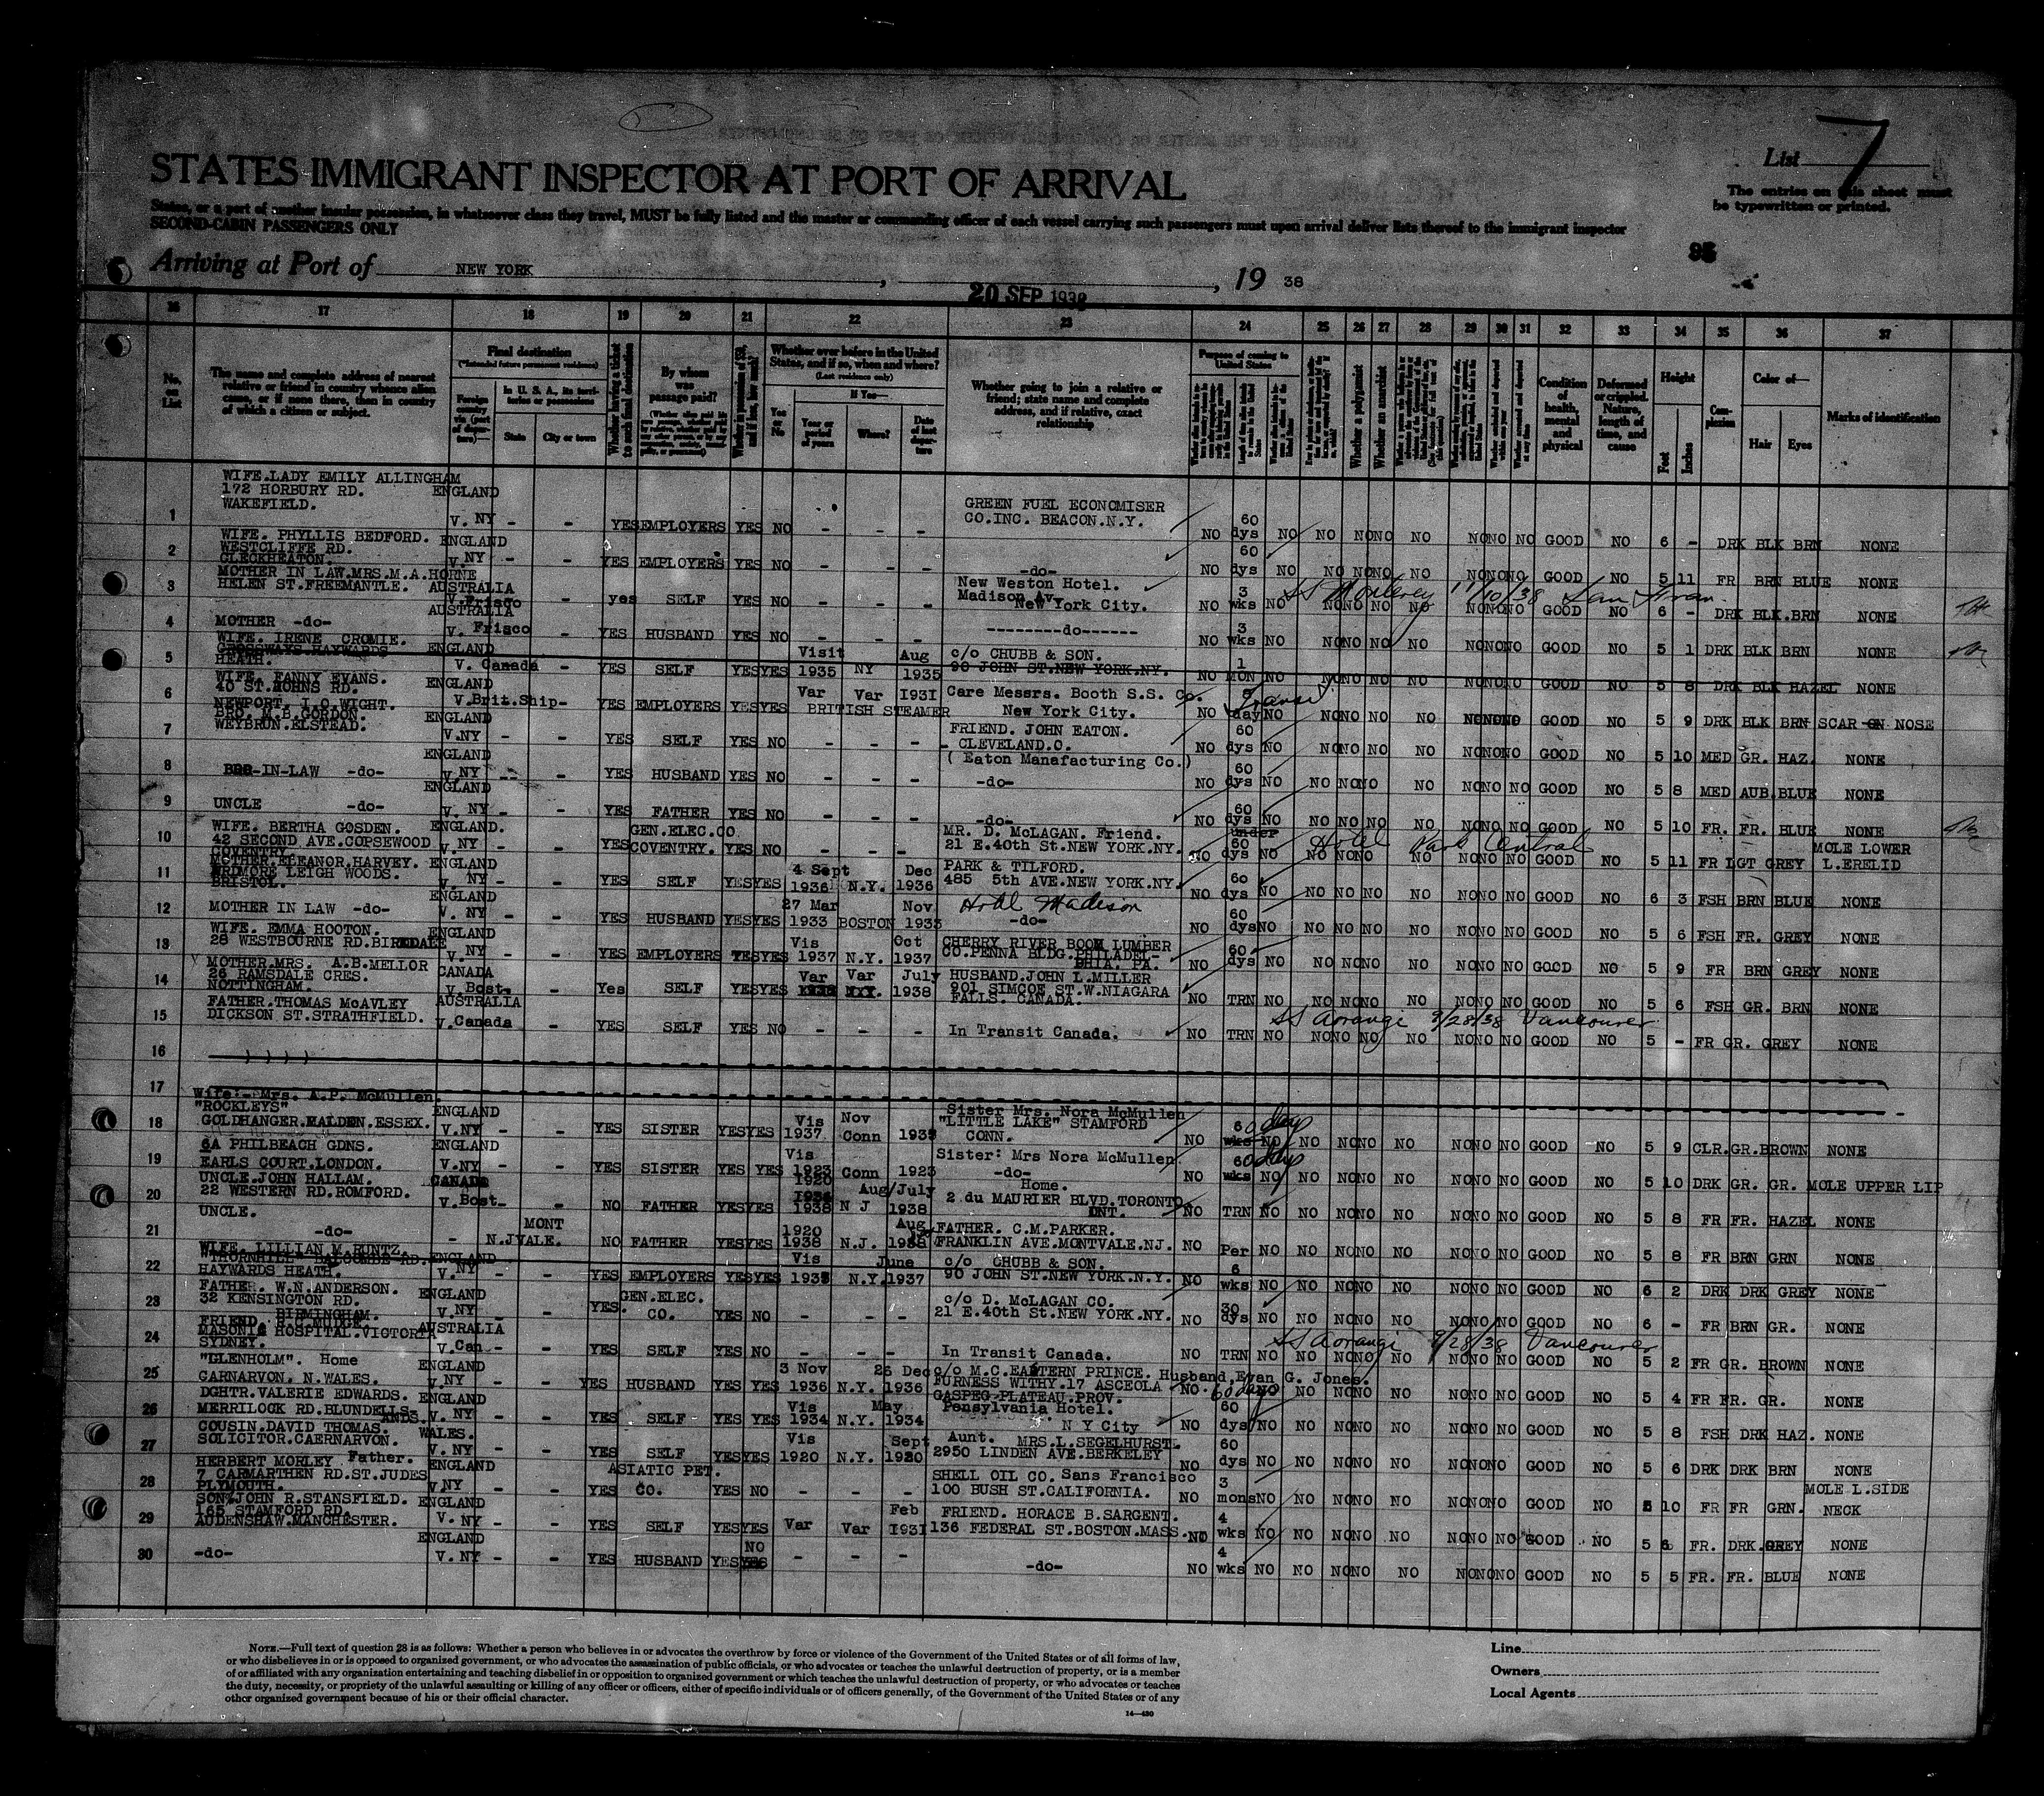 7
List
STATES IMMIGRANT INSPECTOR AT PORT OF ARRIVAL
The entries on this sheet must
be typewritten or printed.
States, or a port of another insular possession, in whatsoever class they travel, MUST be fully listed and the master or commanding officer of each vessel carrying such passengers must upon arrival deliver lists thereof to the immigrant inspector
SECOND-CABIN PASSENGERS ONLY
Arriving at Port of NEW YORK , 20 SEP 1938 , 19 38
16 17 18 19 20 21 22 23 24 25 26 27 28 29 30 31 32 33 34 35 36 37
No. on List
The name and complete address of nearest relative or friend in country whence alien came, or if none there, then in country of which a citizen or subject.
Final destination
(*Intended future permanent residence)
Foreign country via (port of departure)—
In U. S. A., its territories or possessions
State
City or town
Whether having a ticket to such final destination
By whom was passage paid?
Whether ever before in the United States, and if so, when and where?
(Last residence only)
If Yes—
Yes or No
Year or period of years
Where?
Date of last departure
Whether going to join a relative or friend; state name and complete address, and if relative, exact relationship
Purpose of coming to United States
Whether a polygamist
Whether an anarchist
Condition of health, mental and physical
Deformed or crippled. Nature, length of time, and cause
Height
Feet
Inches
Complexion
Color of—
Hair
Eyes
Marks of identification
WIFE.LADY EMILY ALLINGHAM
172 HORBURY RD. ENGLAND
WAKEFIELD. GREEN FUEL ECONOMISER
1 V. NY - - YES EMPLOYERS YES NO - - - CO.INC. BEACON.N.Y. NO 60 dys NO NO NO NO NO NO NO NO GOOD NO 6 - DRK BLK BRN NONE
WIFE. PHYLLIS BEDFORD. ENGLAND
WESTCLIFFE RD.
2 CLECKHEATON. V. NY - - YES EMPLOYERS YES NO - - - -do- NO 60 dys NO NO NO NO NO NO NO NO GOOD NO 5 11 FR BRN BLUE NONE
MOTHER IN LAW.MRS.M.A.HORNE New Weston Hotel.
3 HELEN ST.FREEMANTLE. AUSTRALIA V. Frisco - yes SELF YES NO - - - Madison Av. New York City. NO 3 wks NO NO NO NO NO NO NO NO GOOD NO 6 - DRK BLK.BRN NONE
SS Monterey 11/10/38 San Fran.
4 MOTHER -do- AUSTRALIA V. Frisco - YES HUSBAND YES NO - - - --------do------ NO 3 wks NO NO NO NO NO NO NO NO GOOD NO 5 1 DRK BLK BRN NONE
WIFE. IRENE CROMIE. ENGLAND Visit Aug c/o CHUBB & SON.
5 CROSSWAYS.HAYWARDS HEATH. V. Canada - YES SELF YES YES 1935 NY 1935 90 JOHN ST.NEW YORK.NY. NO 1 MON NO NO NO NO NO NO NO NO GOOD NO 5 8 DRK BLK HAZEL NONE
WIFE. FANNY EVANS. ENGLAND
6 40 ST.JOHNS RD. V.Brit.Ship- YES EMPLOYERS YES YES Var Var 1931 Care Messrs. Booth S.S. Co.
NEWPORT. I.O.WIGHT. BRITISH STEAMER New York City. NO day NO NO NO NO NO NO NO NO GOOD NO 5 9 DRK BLK BRN SCAR ON NOSE
Transit
BRO. M.B.GORDON. ENGLAND FRIEND. JOHN EATON.
7 WEYBRUN.ELSTEAD. V.NY - - YES SELF YES NO - - - CLEVELAND.O. NO 60 dys NO NO NO NO NO NO NO NO GOOD NO 5 10 MED GR. HAZ. NONE
( Eaton Manafacturing Co.)
8 BRO-IN-LAW -do- ENGLAND V. NY - - YES HUSBAND YES NO - - - -do- NO 60 dys NO NO NO NO NO NO NO NO GOOD NO 5 8 MED AUB.BLUE NONE
9 UNCLE -do- ENGLAND V. NY - - YES FATHER YES NO - - - -do- NO 60 dys NO NO NO NO NO NO NO NO GOOD NO 5 10 FR. FR. BLUE NONE
WIFE. BERTHA GOSDEN. ENGLAND. GEN.ELEC.CO MR. D. McLAGAN. Friend. under
10 42 SECOND AVE.COPSEWOOD V. NY - - YES COVENTRY. YES NO - - - 21 E.40th ST.NEW YORK.NY. NO 60 dys NO NO NO NO NO NO NO NO GOOD NO 5 11 FR LGT GREY MOLE LOWER L.ERELID
COVENTRY. Hotel Park Central
MOTHER.ELEANOR.HARVEY. ENGLAND 4 Sept Dec PARK & TILFORD.
11 ARDMORE LEIGH WOODS. V. NY - - YES SELF YES YES 1936 N.Y. 1936 485 5th AVE.NEW YORK.NY. NO 60 dys NO NO NO NO NO NO NO NO GOOD NO 6 3 FSH BRN BLUE NONE
BRISTOL.
12 MOTHER IN LAW -do- ENGLAND V. NY - - YES HUSBAND YES YES 27 Mar 1933 BOSTON Nov 1933 Hotel Madison -do- NO 60 dys NO NO NO NO NO NO NO NO GOOD NO 5 6 FSH FR. GREY NONE
WIFE. EMMA HOOTON. ENGLAND Vis Oct CHERRY RIVER BOOM LUMBER
13 28 WESTBOURNE RD.BIRKDALE V. NY - - YES EMPLOYERS YES YES 1937 N.Y. 1937 CO.PENNA BLDG.PHILADEL- PHIA. PA. NO 60 dys NO NO NO NO NO NO NO NO GOOD NO 5 9 FR BRN GREY NONE
MOTHER.MRS. A.B.MELLOR CANADA Var Var July HUSBAND.JOHN L.MILLER
14 26 RAMSDALE CRES. V. Bost- - Yes SELF YES YES 1938 901 SIMCOE ST.W.NIAGARA
NOTTINGHAM. FALLS. CANADA. NO TRN NO NO NO NO NO NO NO NO GOOD NO 5 6 FSH GR. BRN NONE
FATHER.THOMAS McAVLEY AUSTRALIA SS Aorangi 9/28/38 Vancouver
15 DICKSON ST.STRATHFIELD. V.Canada - YES SELF YES NO - - - In Transit Canada. NO TRN NO NO NO NO NO NO NO NO GOOD NO 5 - FR GR. GREY NONE
16
17
Wife:- Mrs. A.P. McMullen.
"ROCKLEYS" ENGLAND Vis Nov Sister Mrs. Nora McMullen
18 GOLDHANGER.MALDEN.ESSEX. V.NY - - YES SISTER YES YES 1937 Conn "LITTLE LAKE" STAMFORD CONN. NO 60 days NO NO NO NO NO NO NO NO GOOD NO 5 9 CLR.GR.BROWN NONE
6A PHILBEACH GDNS. ENGLAND Vis Sister: Mrs Nora McMullen.
19 EARLS COURT.LONDON. V.NY - - YES SISTER YES YES 1923 Conn 1923 -do- NO 60 days NO NO NO NO NO NO NO NO GOOD NO 5 10 DRK GR. GR. MOLE UPPER LIP
UNCLE.JOHN HALLAM. CANADA 1920 Home.
20 22 WESTERN RD.ROMFORD. V. Bost- - NO FATHER YES YES 1938 N J Aug/July 1938 2 du MAURIER BLVD.TORONTO ONT. NO TRN NO NO NO NO NO NO NO NO GOOD NO 5 8 FR FR. HAZEL NONE
UNCLE.
21 -do- - N.J MONTVALE. NO FATHER YES YES 1920 1938 N.J. Aug 1938 FATHER. C.M.PARKER. FRANKLIN AVE.MONTVALE.NJ. NO Per NO NO NO NO NO NO NO NO GOOD NO 5 8 FR BRN GRN NONE
WIFE. LILLIAN M.RUNTZ. ENGLAND Vis June c/o CHUBB & SON.
22 THORNHILL BALCOMBE RD. HAYWARDS HEATH. V.NY - - YES EMPLOYERS YES YES N.Y. 1937 90 JOHN ST.NEW YORK.N.Y. NO 6 wks NO NO NO NO NO NO NO NO GOOD NO 6 2 DRK DRK GREY NONE
FATHER. W.N.ANDERSON. ENGLAND GEN.ELEC. c/o D. McLAGAN CO.
23 32 KENSINGTON RD. BIRMINGHAM. V.NY - - YES. CO. YES NO - - - 21 E.40th St.NEW YORK.NY. NO 30 dys NO NO NO NO NO NO NO NO GOOD NO 6 - FR BRN GR. NONE
FRIEND. MUDGE. AUSTRALIA SS Aorangi 9/28/38 Vancouver
24 MASONIC HOSPITAL.VICTORIA SYDNEY. V.Can.- - YES SELF YES NO - - - In Transit Canada. NO TRN NO NO NO NO NO NO NO NO GOOD NO 5 2 FR GR. BROWN NONE
"GLENHOLM". Home ENGLAND 3 Nov 26 Dec c/o M.C.EASTERN PRINCE. Husband,Evan G. Jones.
25 CARNARVON. N.WALES. V.NY - - YES HUSBAND YES YES 1936 N.Y. 1936 FURNESS WITHY.17 ASCEOLA NO 60 days NO NO NO NO NO NO NO NO GOOD NO 5 4 FR FR. GR. NONE
GASPEG-PLATEAU.PROV.
DGHTR.VALERIE EDWARDS. ENGLAND Vis May Pensylvania Hotel.
26 MERRILOCK RD.BLUNDELL- SANDS. V. NY - - YES SELF YES YES 1934 N.Y. 1934 N Y City NO 60 dys NO NO NO NO NO NO NO NO GOOD NO 5 8 FSH DRK HAZ. NONE
COUSIN.DAVID THOMAS. WALES. Vis Sept Aunt. MRS.L.SEGELHURST.
27 SOLICITOR.CAERNARVON. V. NY - - YES SELF YES YES 1920 N.Y. 1920 2950 LINDEN AVE.BERKELEY NO 60 dys NO NO NO NO NO NO NO NO GOOD NO 5 6 DRK DRK BRN NONE
HERBERT MORLEY Father. ENGLAND ASIATIC PET. SHELL OIL CO. Sans Francisco
28 7 CARMARTHEN RD.ST.JUDES PLYMOUTH. V.NY - - YES CO. YES NO - - - 100 BUSH ST.CALIFORNIA. NO 3 mons NO NO NO NO NO NO NO NO GOOD NO 5 10 FR FR GRN. MOLE L.SIDE NECK
SON.JOHN R.STANSFIELD. ENGLAND Feb FRIEND. HORACE B.SARGENT.
29 165 STAMFORD RD. AUDENSHAW.MANCHESTER. V. NY - - YES SELF YES YES Var Var 1931 136 FEDERAL ST.BOSTON.MASS. NO 4 wks NO NO NO NO NO NO NO NO GOOD NO 5 6 FR. DRK.GREY NONE
30 -do- ENGLAND V. NY - - YES HUSBAND YES NO - - - -do- NO 4 wks NO NO NO NO NO NO NO NO GOOD NO 5 5 FR. FR. BLUE NONE
NOTE.—Full text of question 28 is as follows: Whether a person who believes in or advocates the overthrow by force or violence of the Government of the United States or of all forms of law,
or who disbelieves in or is opposed to organized government, or who advocates the assassination of public officials, or who advocates or teaches the unlawful destruction of property, or is a member
of or affiliated with any organization entertaining and teaching disbelief in or opposition to organized government or which teaches the unlawful destruction of property, or who advocates or teaches
the duty, necessity, or propriety of the unlawful assaulting or killing of any officer or officers, either of specific individuals or of officers generally, of the Government of the United States or of any
other organized government because of his or their official character.
14—430
Line
Owners
Local Agents